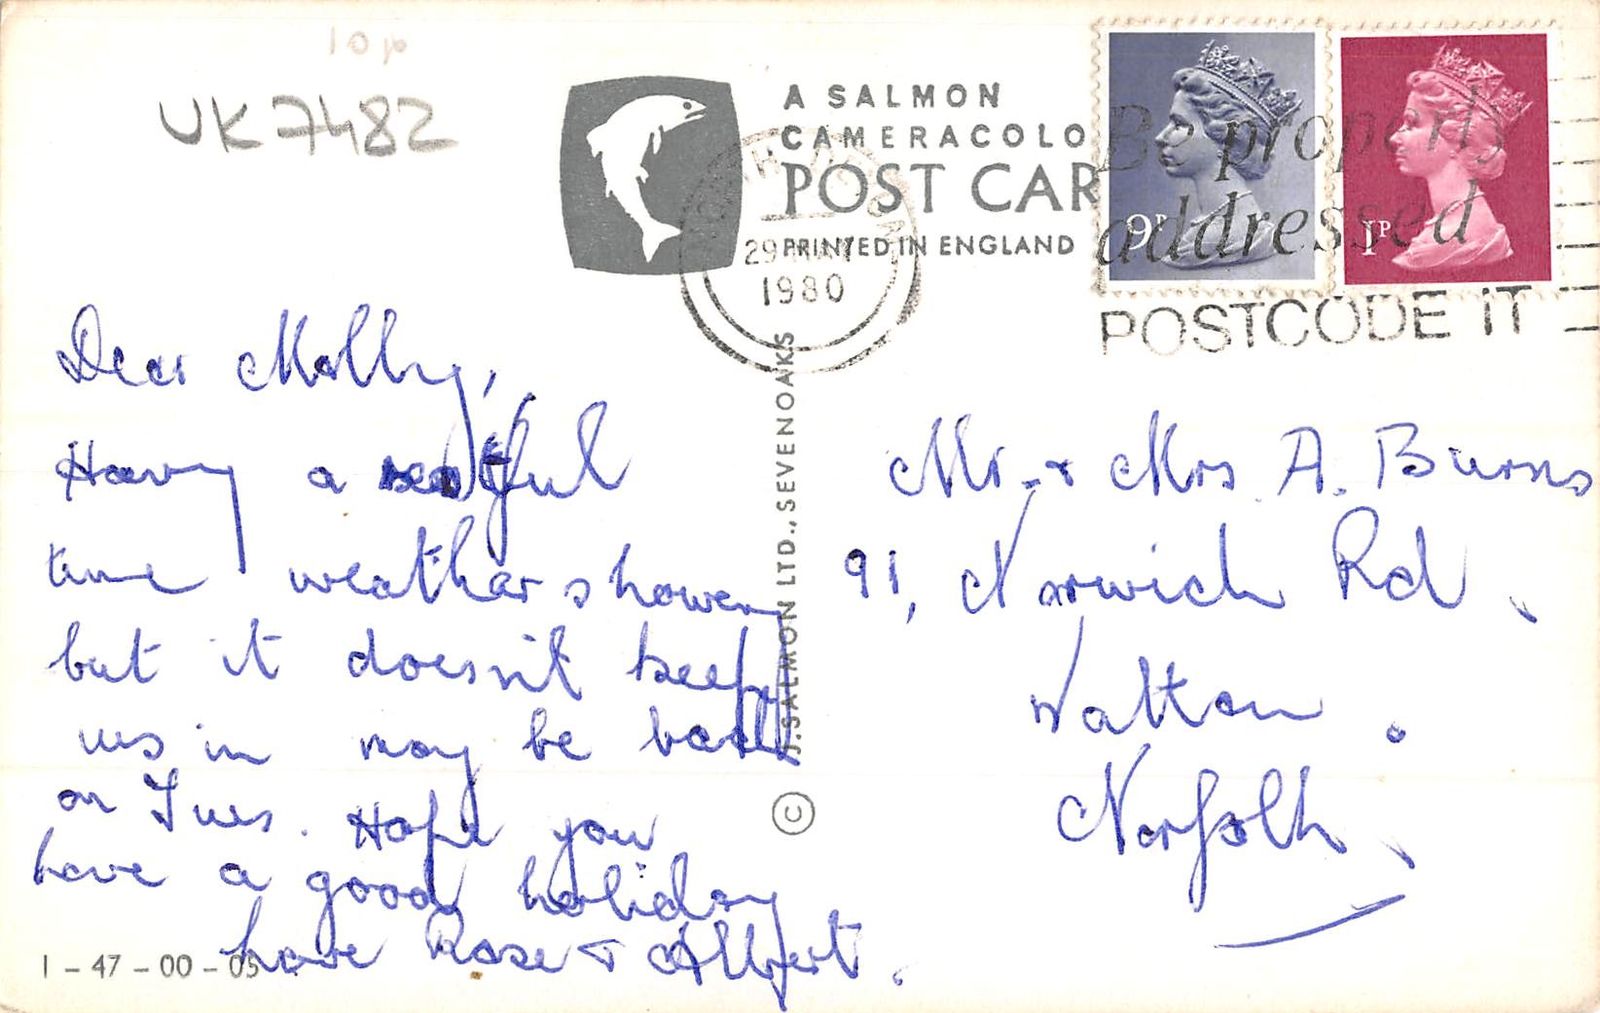 10p
UK7482
A SALMON
CAMERACOLO
POST CAR
PRINTED IN ENGLAND
29
1980
9P
1P
Be properly
addressed
POSTCODE IT
Dear Molly,
Having a restful
time weather showery
but it doesn't keep
us in may be back
on Tues. Hope you
have a good holiday
love Rose & Albert.
1 - 47 - 00 - 05
J. SALMON LTD., SEVENOAKS
©
Mr. & Mrs A. Burns
91, Norwich Rd.
Watton.
Norfolk.